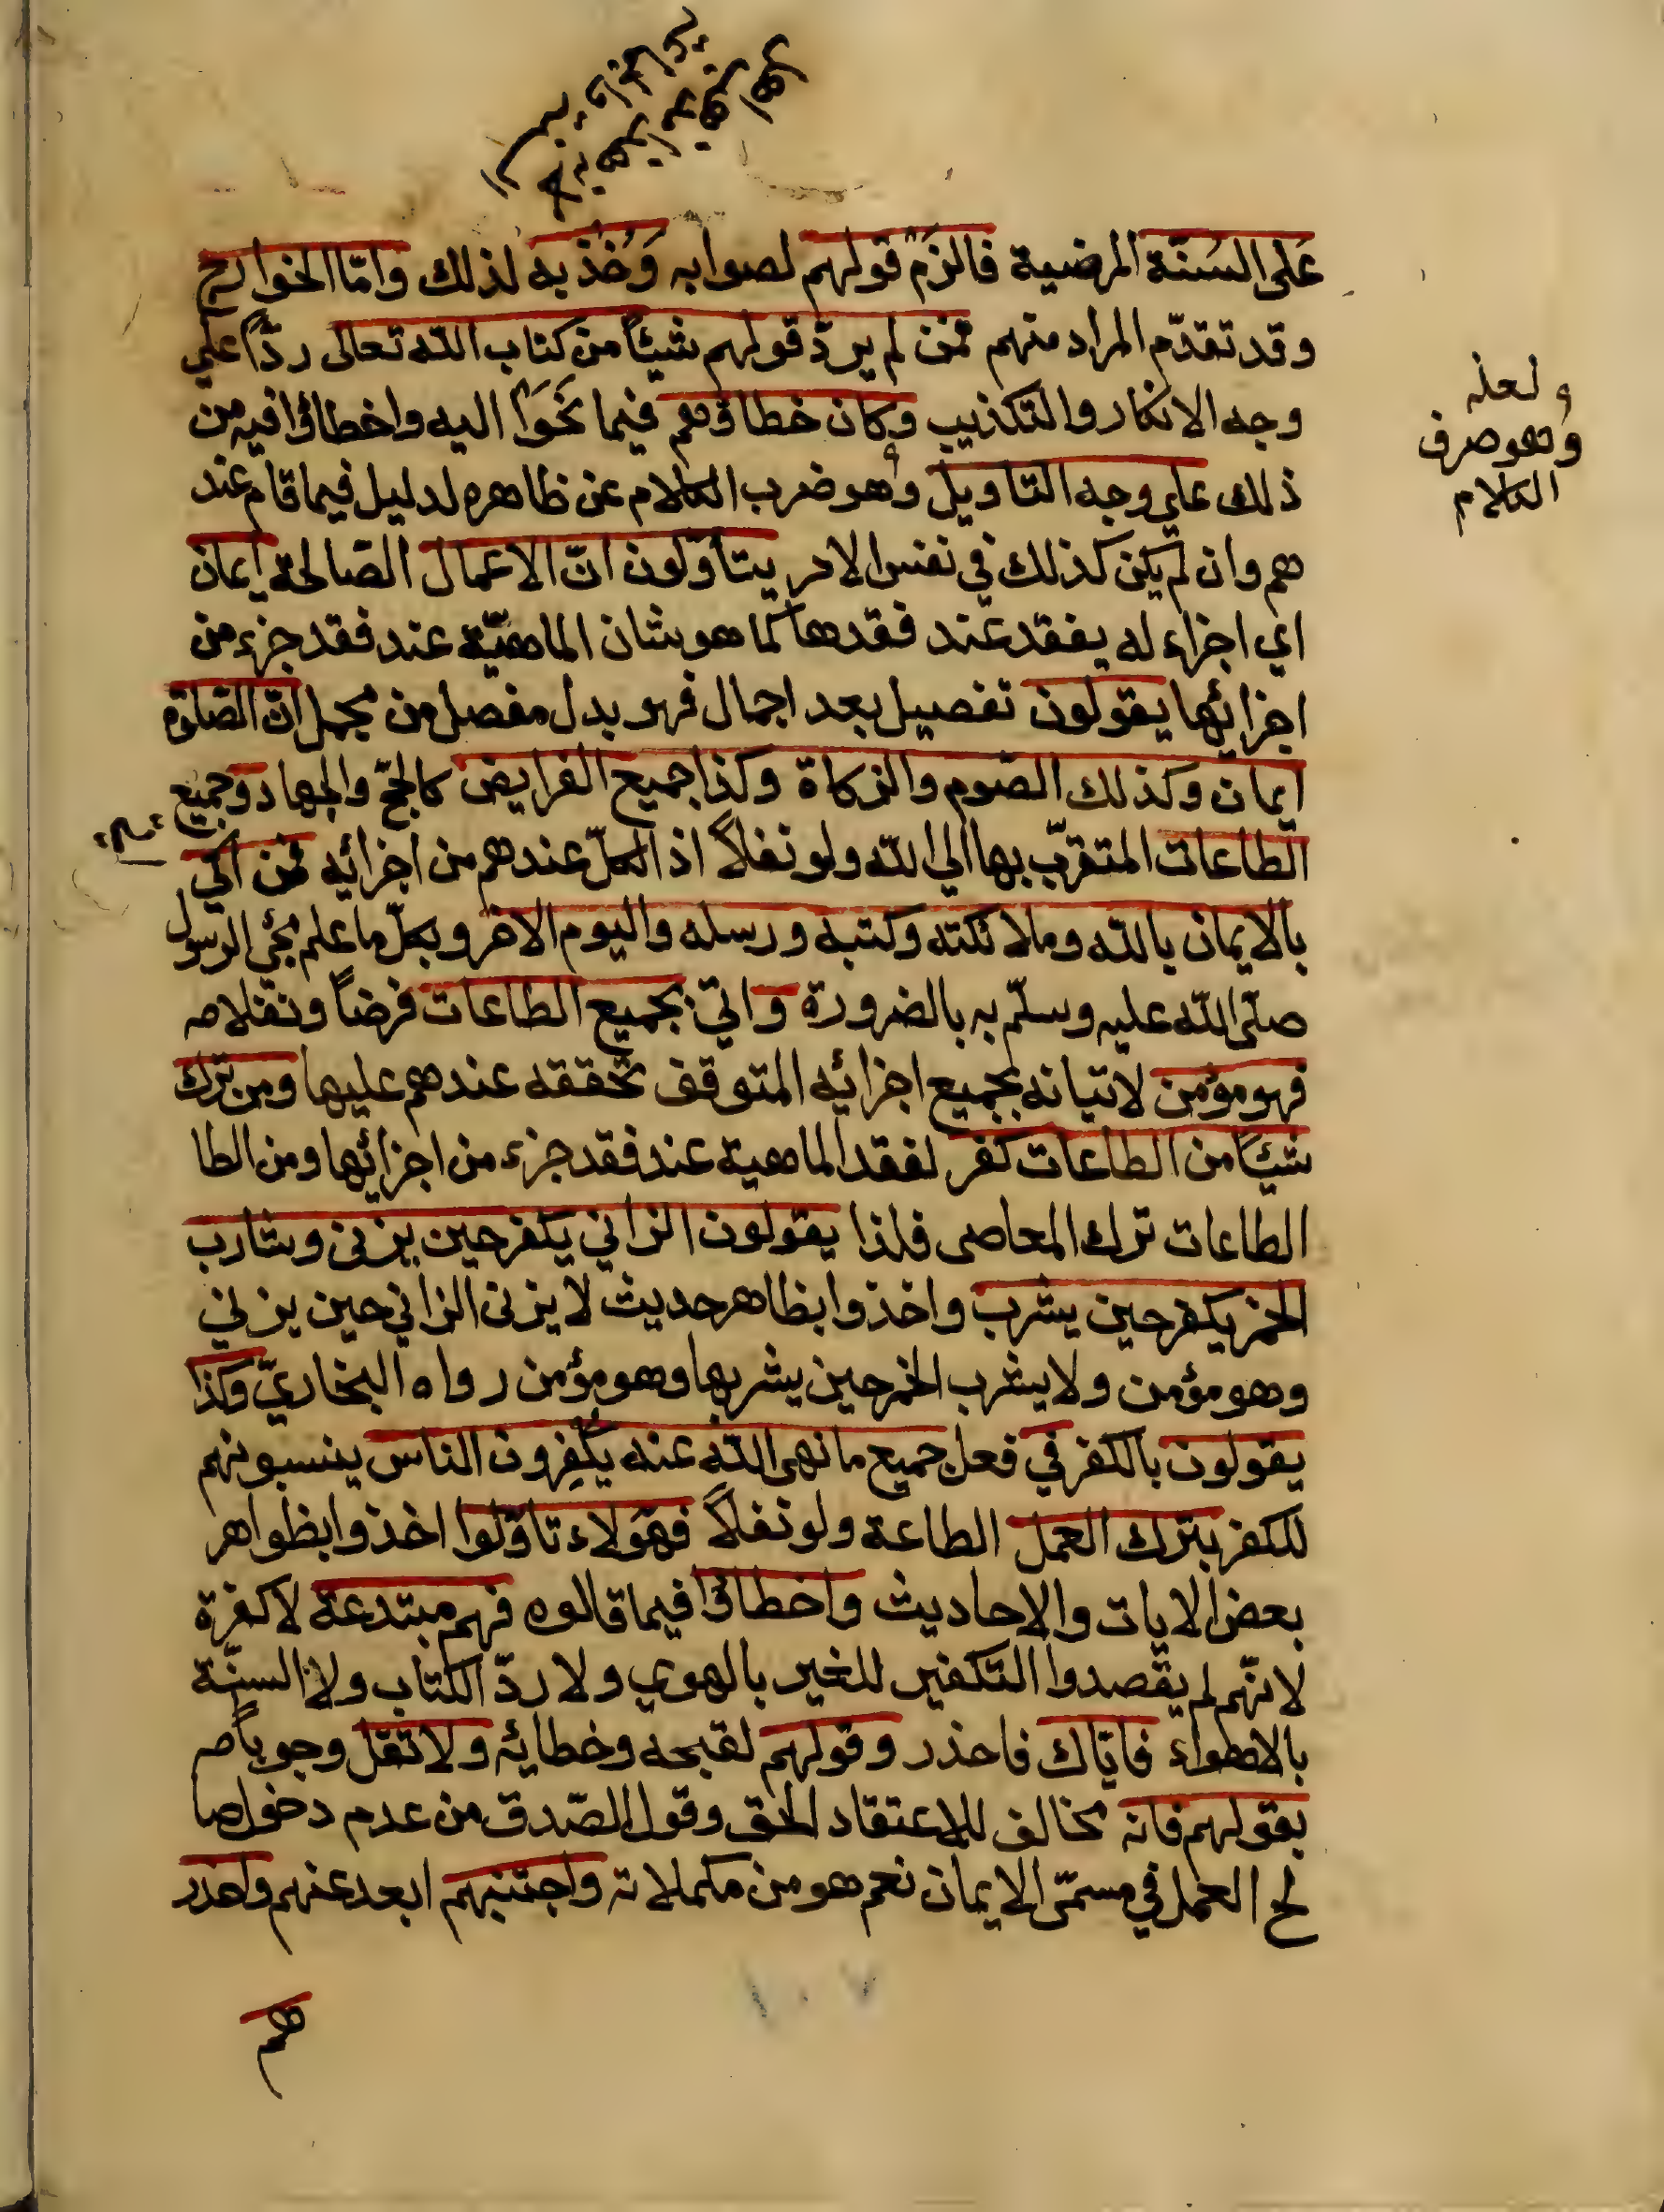 عَلى السَنّة المرضية فالزَمْ قولهم لصوابه وَخُذ به لذلك وامّا الخوارج
وقد تقدّم المراد منهم فمن لم يردّ قولهم شيئًا من كتاب الله تعالى ردًّا علي
وجه الانكار والتكذيب وكان خطاؤهم فيما نَحَوْا اليه واخطاؤا فيه من
ذلك علي وجه التاويل وهو ضرب الكلام عن ظاهره لدليل فيما قام عند
هم وان لم يكن كذلك في نفس الامر يتأوّلون انّ الاعمال الصّالحة ايمان
اي اجزاء له يفقد عند فقدها كما هو شان الماهيّة عند فقد جزء من
اجزائها يقولون تفصيل بعد اجمال فهو بدل مفصل من مجمل انّ الصّلوة
ايمان وكذلك الصّوم والزكاة وكذا جميع الفرايض كالحجّ والجهاد وجميع
الطاعات المتقرّب بها الي الله ولو نفلاً اذ الكلّ عندهم من اجزائه فمن اتي
بالايمان بالله وملائكته وكتبه ورسله واليوم الاخر وبكلّ ما علم مجئ الرسول
صلّى الله عليه وسلّم به بالضرورة واتي بجميع الطاعات فرضاً ونفلا مـ
فهو مؤمن لاتيانه بجميع اجزائه المتوقف تحققه عندهم عليها ومن ترك
شيئًا من الطاعات كفر لفقد الماهية عند فقد جزء من اجزائها ومن الطا
الطاعات ترك المعاصى فلذا يقولون الزاني يكفر حين يزنى وشارب
الخمر يكفر حين يشرب واخذوا بظاهر حديث لا يزنى الزاني حين يزني
وهو مؤمن ولا يشرب الخمر حين يشربها وهو مؤمن رواه البخاريّ وكذا
يقولون بالكفر في فعل جميع ما نهى الله عنه يُكَفِّرون الناس ينسبونهم
للكفر بترك العمل الطاعة ولو نفلاً فهؤلاء تاوّلوا اخذوا بظواهر
بعض الايات والاحاديث واخطاؤا فيما قالوه فهم مبتدعة لا كفرة
لانّهم لم يقصدوا التكفير للغير بالهوي ولا ردّ الكتاب ولا السنّة
بالاهواء فايّاك فاحذر وقولهم لقبحه وخطائه ولا تقل وجوباً مـ
بقولهم فانه مخالف للاعتقاد الحق وقول الصّدق من عدم دخول صا
لح العمل في مسمّى الايمان نعم هو من مكملاته واجتنبهم ابعد عنهم واحذر
هم
ولعله
وهو صرف
الكلام
١٠٧